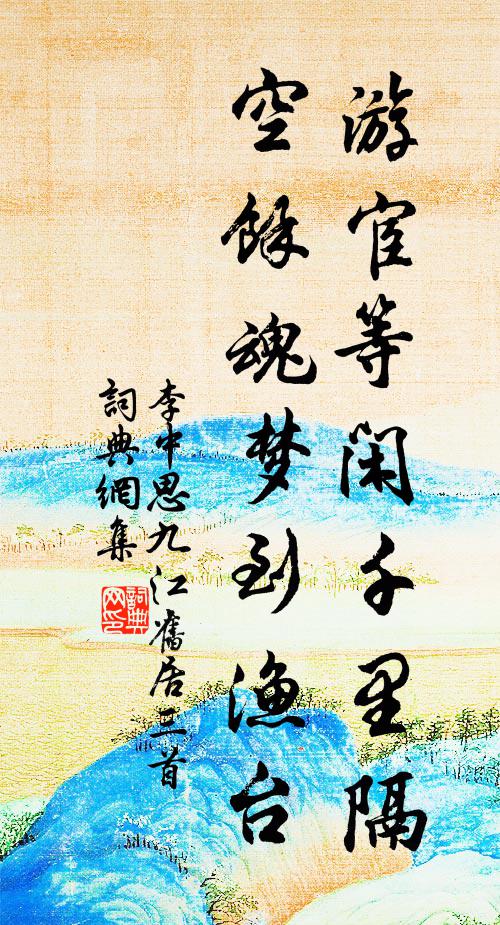 游宦等閑千里隔
空餘魂梦到漁台
李中思九江舊居三首
詞典網集
詞典网印